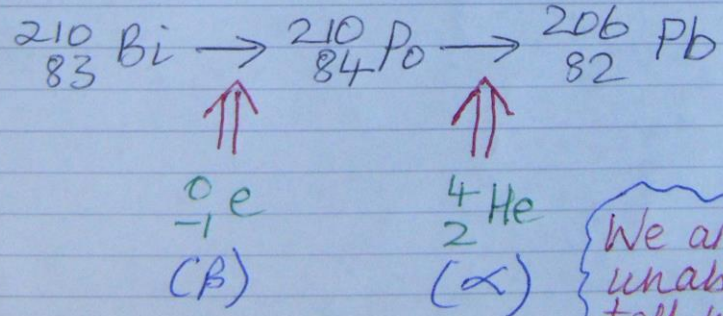 ²¹⁰₈₃Bi → ²¹⁰₈₄Po → ²⁰⁶₈₂Pb
⁰₋₁e ⁴₂He
(β) (α)
We